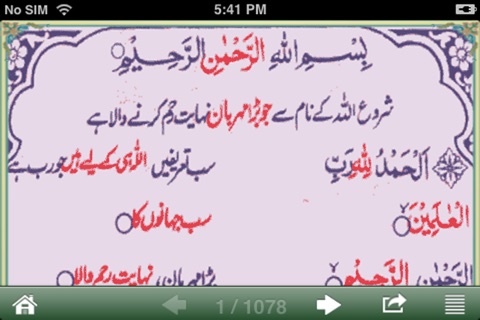 No SIM 5:41 PM
بِسْمِ اللهِ الرَّحْمٰنِ الرَّحِيْمِ
شروع اللہ کے نام سے جو بڑا مہربان نہایت رحم کرنے والا ہے
اَلْحَمْدُ لِلّٰهِ رَبِّ سب تعریفیں اللہ ہی کے لیے ہیں جو رب ہے
الْعٰلَمِيْنَ سب جہانوں کا
الرَّحْمٰنِ الرَّحِيْمِ بڑا مہربان، نہایت رحم والا
1 / 1078